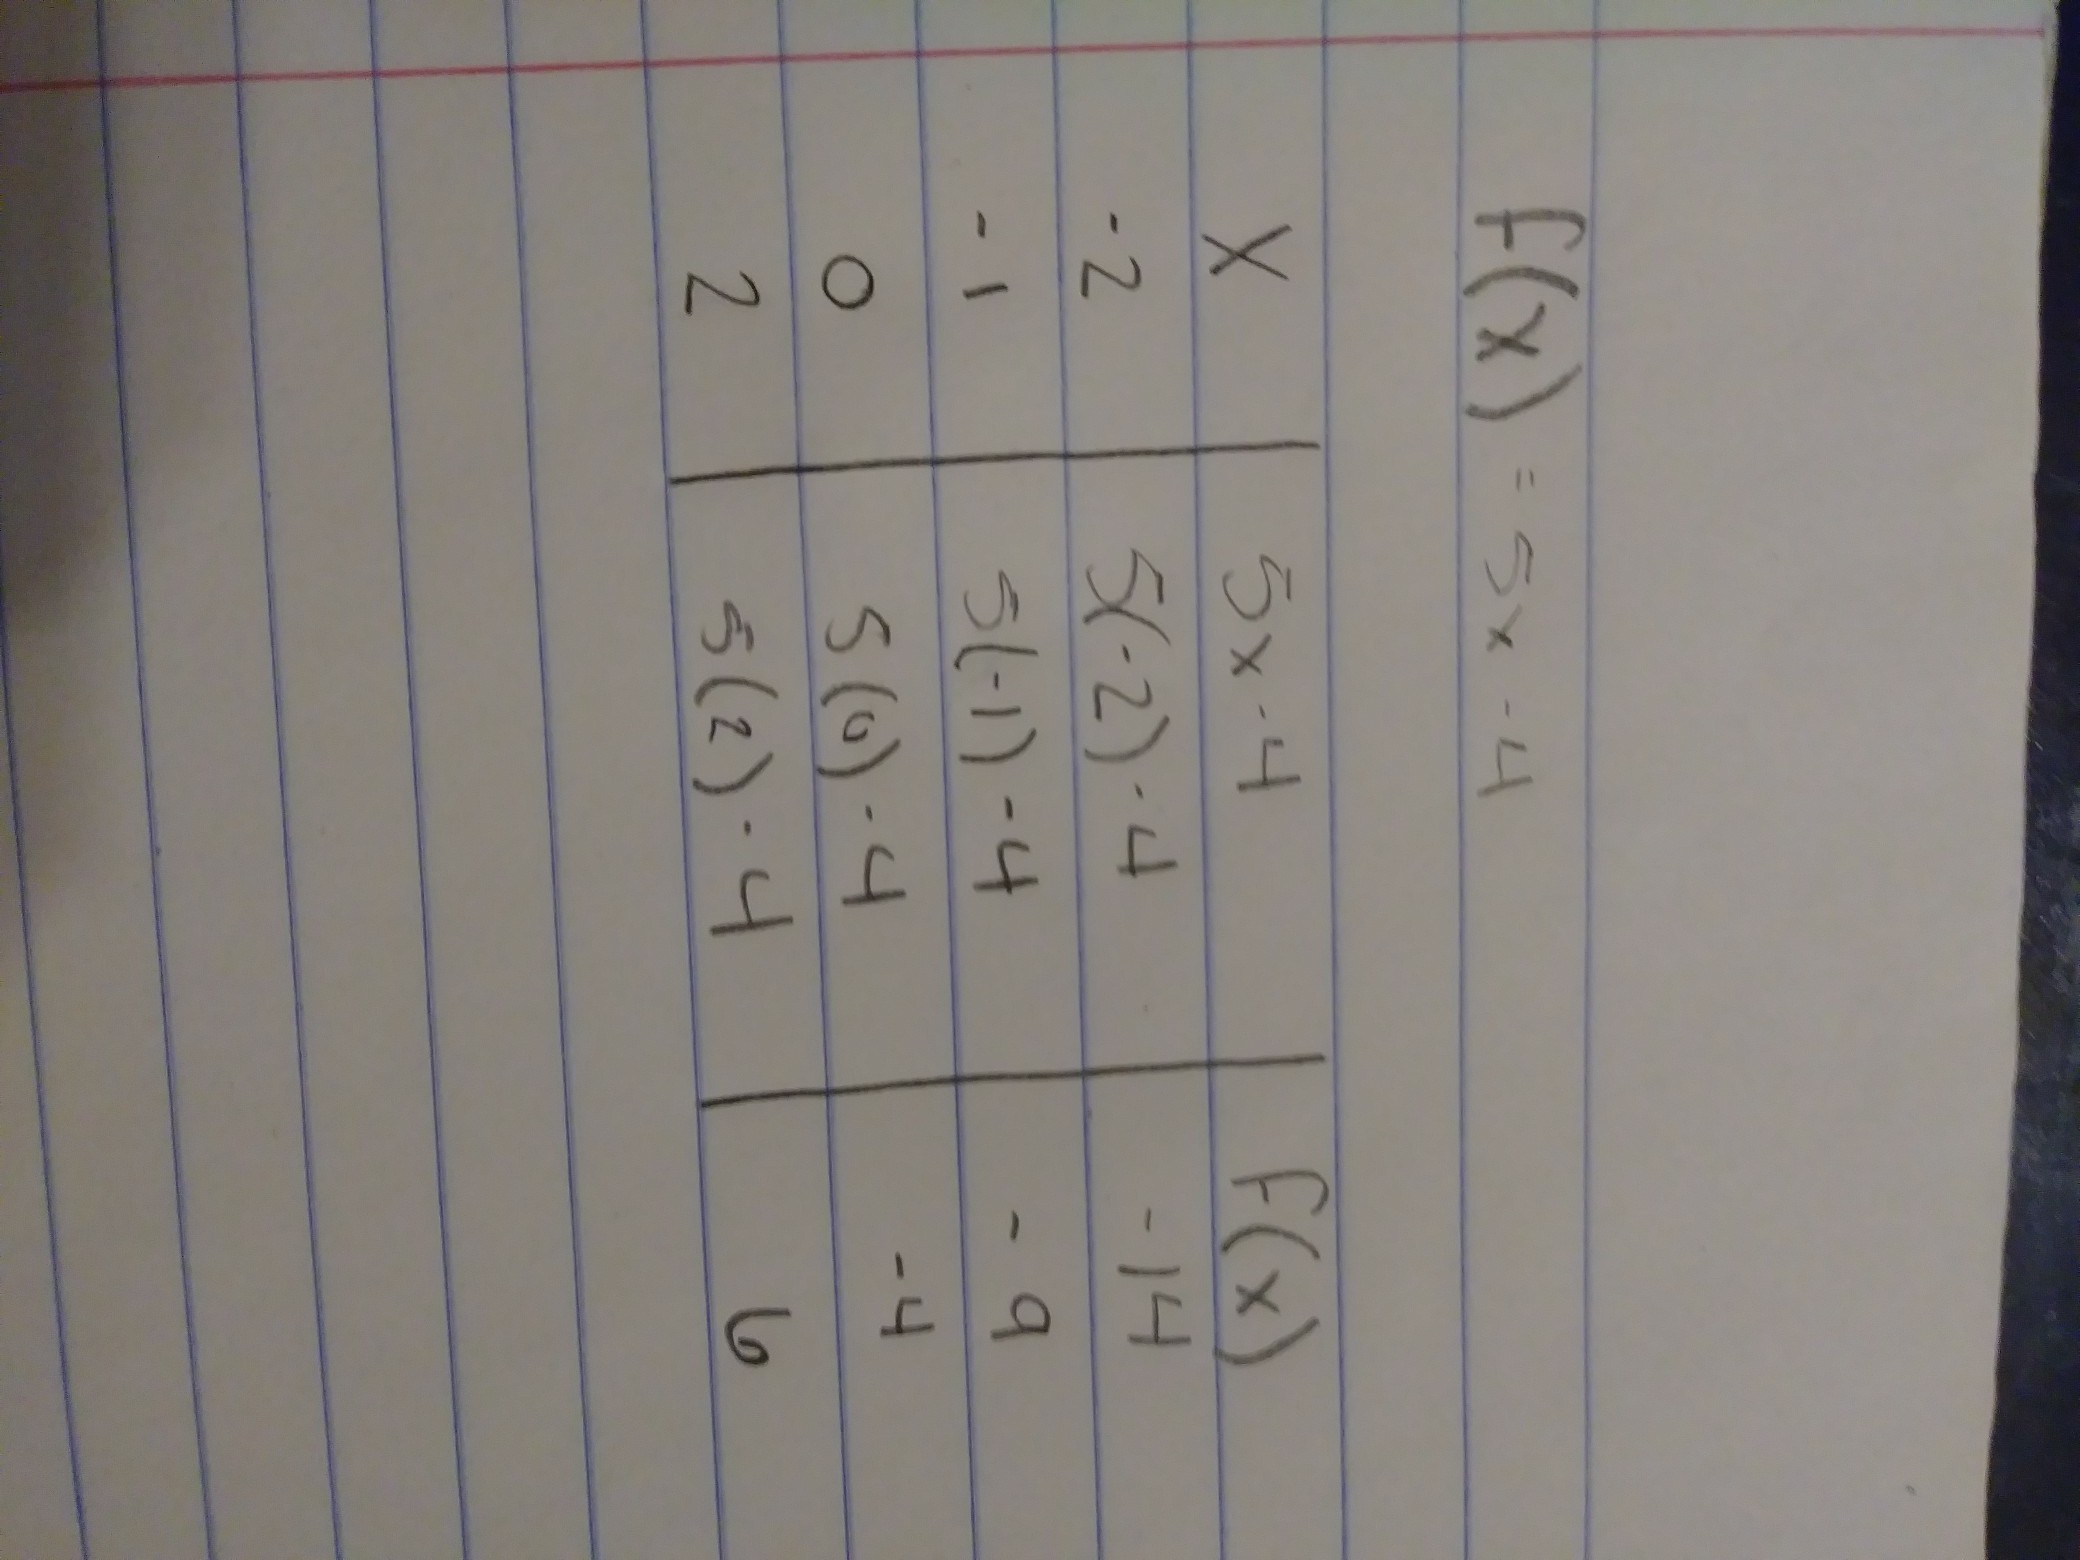 f(x) = 5x - 4
X 5x - 4 f(x)
-2 5(-2) - 4 -14
-1 5(-1) - 4 -9
0 5(0) - 4 -4
2 5(2) - 4 6